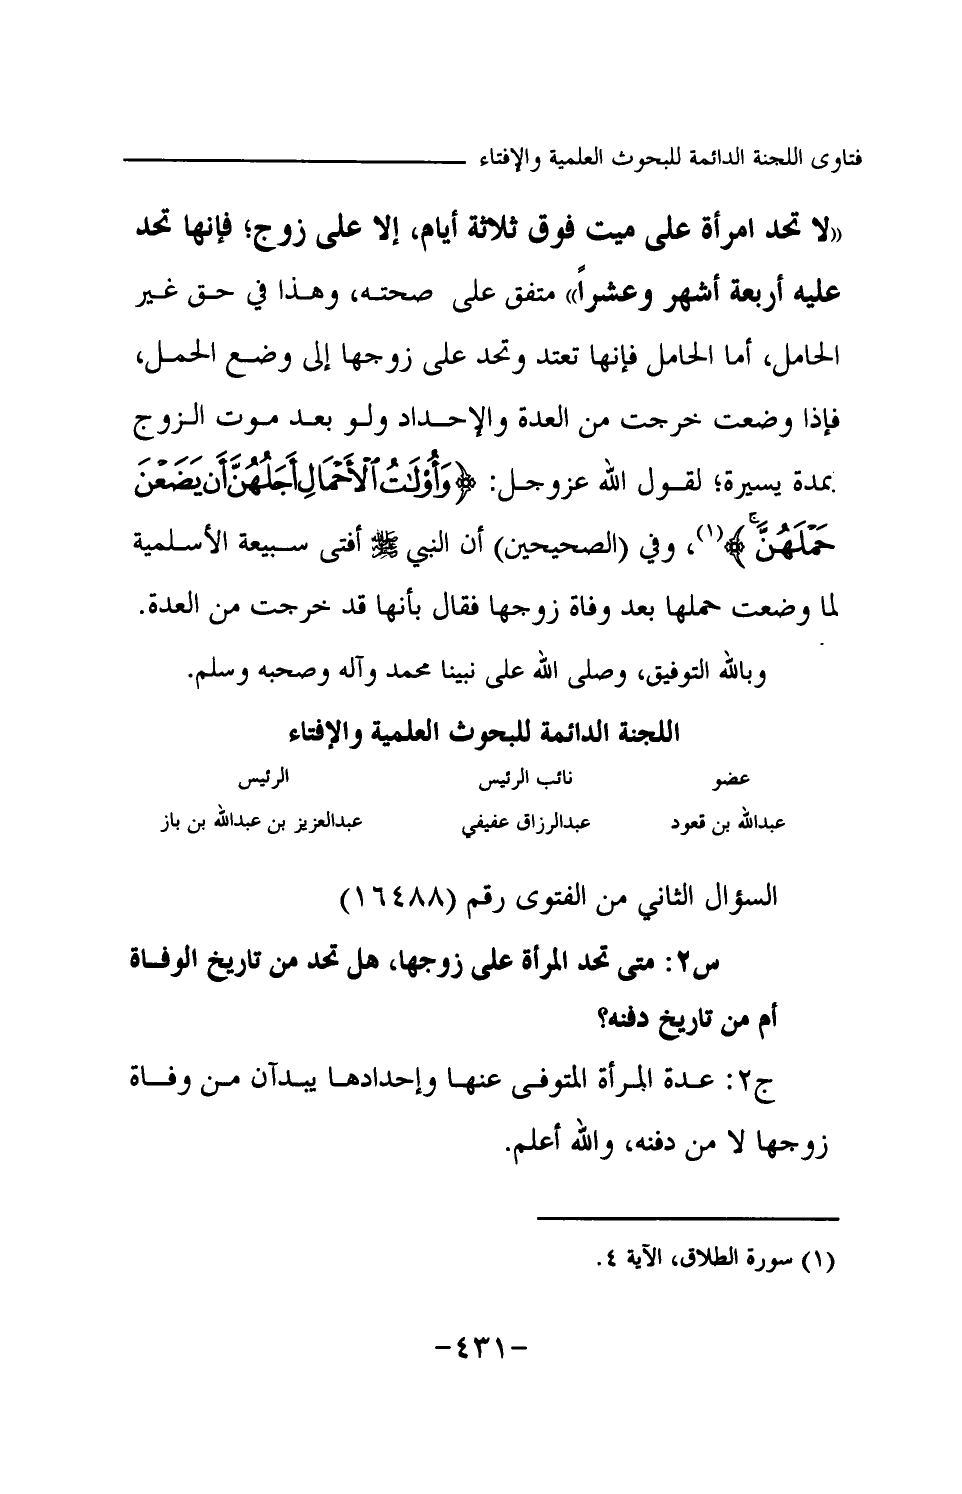 فتاوى اللجنة الدائمة للبحوث العلمية والإفتاء
«لا تحد امرأة على ميت فوق ثلاثة أيام، إلا على زوج؛ فإنها تحد
عليه أربعة أشهر وعشراً» متفق على صحته، وهذا في حق غير
الحامل، أما الحامل فإنها تعتد وتحد على زوجها إلى وضع الحمل،
فإذا وضعت خرجت من العدة والإحداد ولو بعد موت الزوج
بمدة يسيرة؛ لقول الله عزوجل: ﴿وَأُوْلَٰتُ ٱلْأَحْمَالِ أَجَلُهُنَّ أَن يَضَعْنَ
حَمْلَهُنَّ ۚ﴾(١)، وفي (الصحيحين) أن النبي ﷺ أفتى سبيعة الأسلمية
لما وضعت حملها بعد وفاة زوجها فقال بأنها قد خرجت من العدة.
وبالله التوفيق، وصلى الله على نبينا محمد وآله وصحبه وسلم.
اللجنة الدائمة للبحوث العلمية والإفتاء
عضو نائب الرئيس الرئيس
عبدالله بن قعود عبدالرزاق عفيفي عبدالعزيز بن عبدالله بن باز
السؤال الثاني من الفتوى رقم (١٦٤٨٨)
س٢: متى تحد المرأة على زوجها، هل تحد من تاريخ الوفاة
أم من تاريخ دفنه؟
ج٢: عدة المرأة المتوفى عنها وإحدادها يبدآن من وفاة
زوجها لا من دفنه، والله أعلم.
(١) سورة الطلاق، الآية ٤.
-٤٣١-